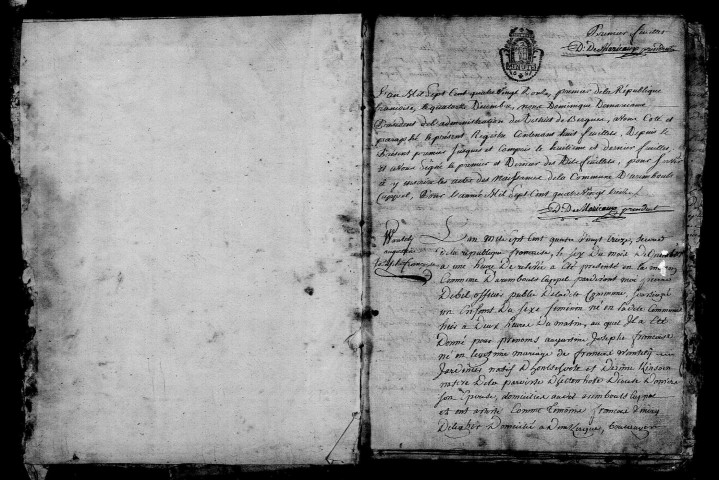 Premier feuillet
D. De Maricaux président
L'an Mil Sept Cent quatre Vingt Douze, premier de la République
francoise, le quatorze Decembre, nous Dominique Demaricaux
Président de l'administration du District de Bergues, avons Coté et
paraphé le présent Registre Contenant huit feuillets, Depuis le
présent premier Jusques et Compris le huitieme et dernier feuillet,
et avons Signé le premier et Dernier des dits feuillets, pour servir
à y inscrire les actes des Naissances de la Commune D'armbouts
Cappel, Pour l'année Mil Sept Cent quatre Vingt treize
D. De Maricaux président
augustine
Joseph françoise
L'an mil Sept Cent quatre vingt treize, second
de la république francoise, le six du mois de
à une heure De relevée a été presenté en la
Commune D'armbouts Cappel pardevant moi
Debil officier public De ladite Commune
un Enfant Du Sexe feminin né en ladite Commune
hier à Deux heures Du matin, au quel Il a Eté
Donné pour prénoms augustine Josephe francoise
né en legitime mariage de francois
natif D'hontschoote et De
native De la paroisse D
son Epouse, domiciliés audit armbouts Cappel
et ont assisté Comme temoins francois
Domicilié a Dunkerque,